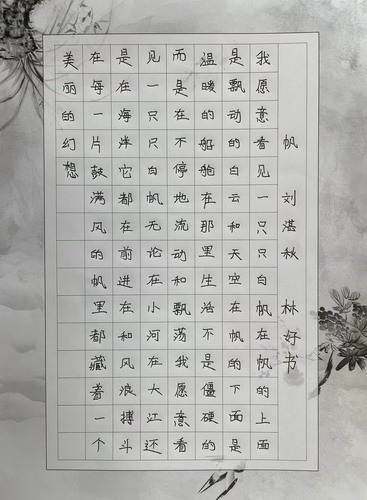 帆 刘湛秋 林好书
我愿意看见一只只白帆在帆的上面
是飘动的白云和天空在帆的下面是
温暖的船舱在那里生活不是僵硬的
而是在不停地流动和飘荡我愿意看
见一只只白帆无论在小河在大江还
是在海洋它都在前进在和风浪搏斗
在每一片鼓满风的帆里都藏着一个
美丽的幻想